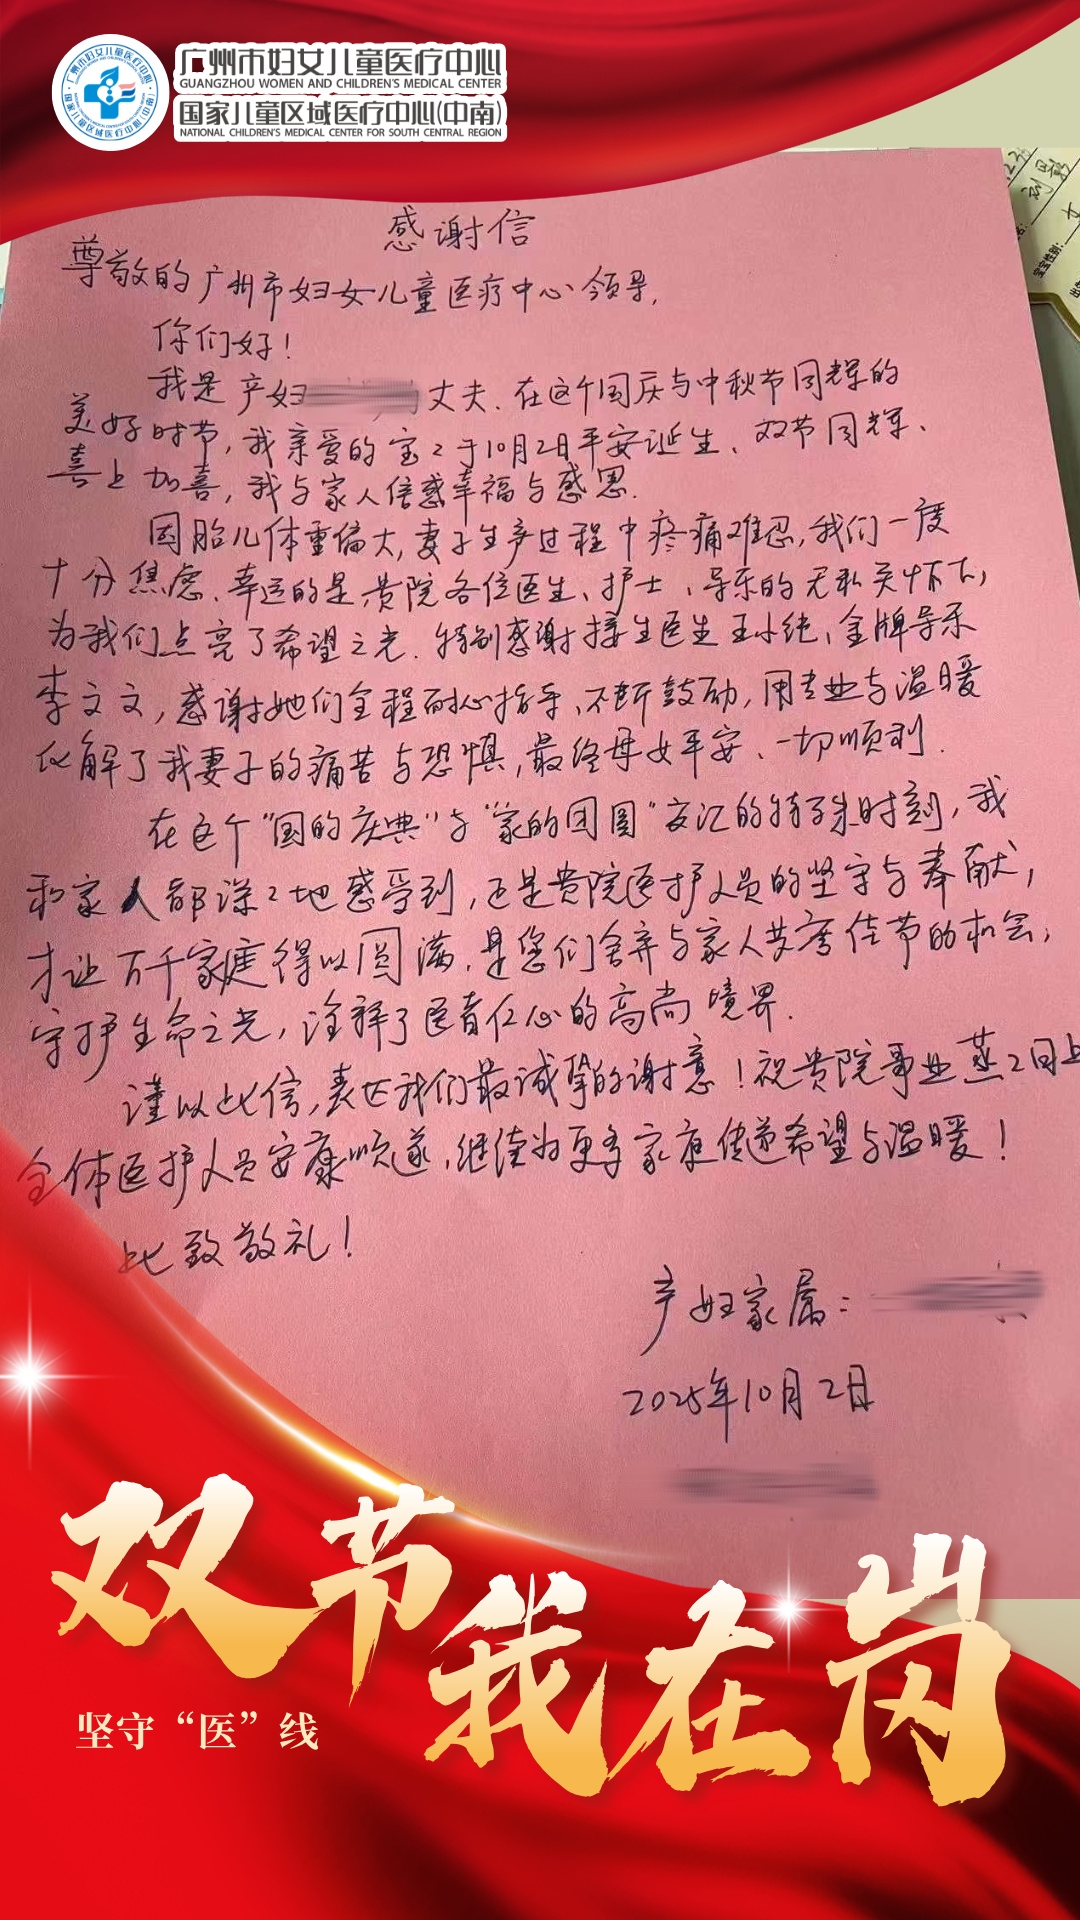 广州市妇女儿童医疗中心
GUANGZHOU WOMEN AND CHILDREN'S MEDICAL CENTER
国家儿童区域医疗中心(中南)
NATIONAL CHILDREN'S MEDICAL CENTER FOR SOUTH CENTRAL REGION
感谢信
尊敬的广州市妇女儿童医疗中心领导,
你们好!
我是产妇 丈夫、在这个国庆与中秋节同辉的
美好时节,我亲爱的宝2于10月2日平安诞生、双节同辉、
喜上加喜,我与家人倍感幸福与感恩.
因胎儿体重偏大,妻子生产过程中疼痛难忍,我们一度
十分焦虑、幸运的是贵院各位医生、护士、导乐的无私关怀下,
为我们点亮了希望之光.特别感谢接生医生王小艳、金牌导乐
李文文,感谢她们全程耐心指导、不断鼓励,用专业与温暖
化解了我妻子的痛苦与恐惧,最终母女平安、一切顺利.
在这个"国的庆典"与"家的团圆"交汇的特殊时刻,我
和家人都深2地感受到,正是贵院医护人员的坚守与奉献,
才让万千家庭得以圆满.是您们舍弃与家人共度佳节的机会,
守护生命之光,诠释了医者仁心的高尚境界.
谨以此信,表达我们最诚挚的谢意!祝贵院事业蒸2日上
全体医护人员安康顺遂,继续为更多家庭传递希望与温暖!
此致敬礼!
产妇家属:
2025年10月2日
双节
我在岗
坚守“医”线
宝宝性别:
女